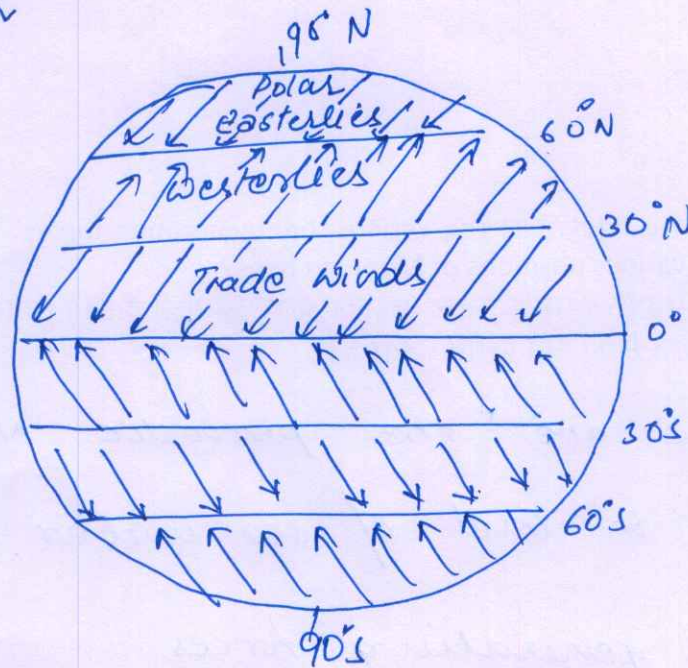 90° N
Polar
easterlies
60°N
Westerlies
30°N
Trade winds
0°
30°S
60°S
90°S